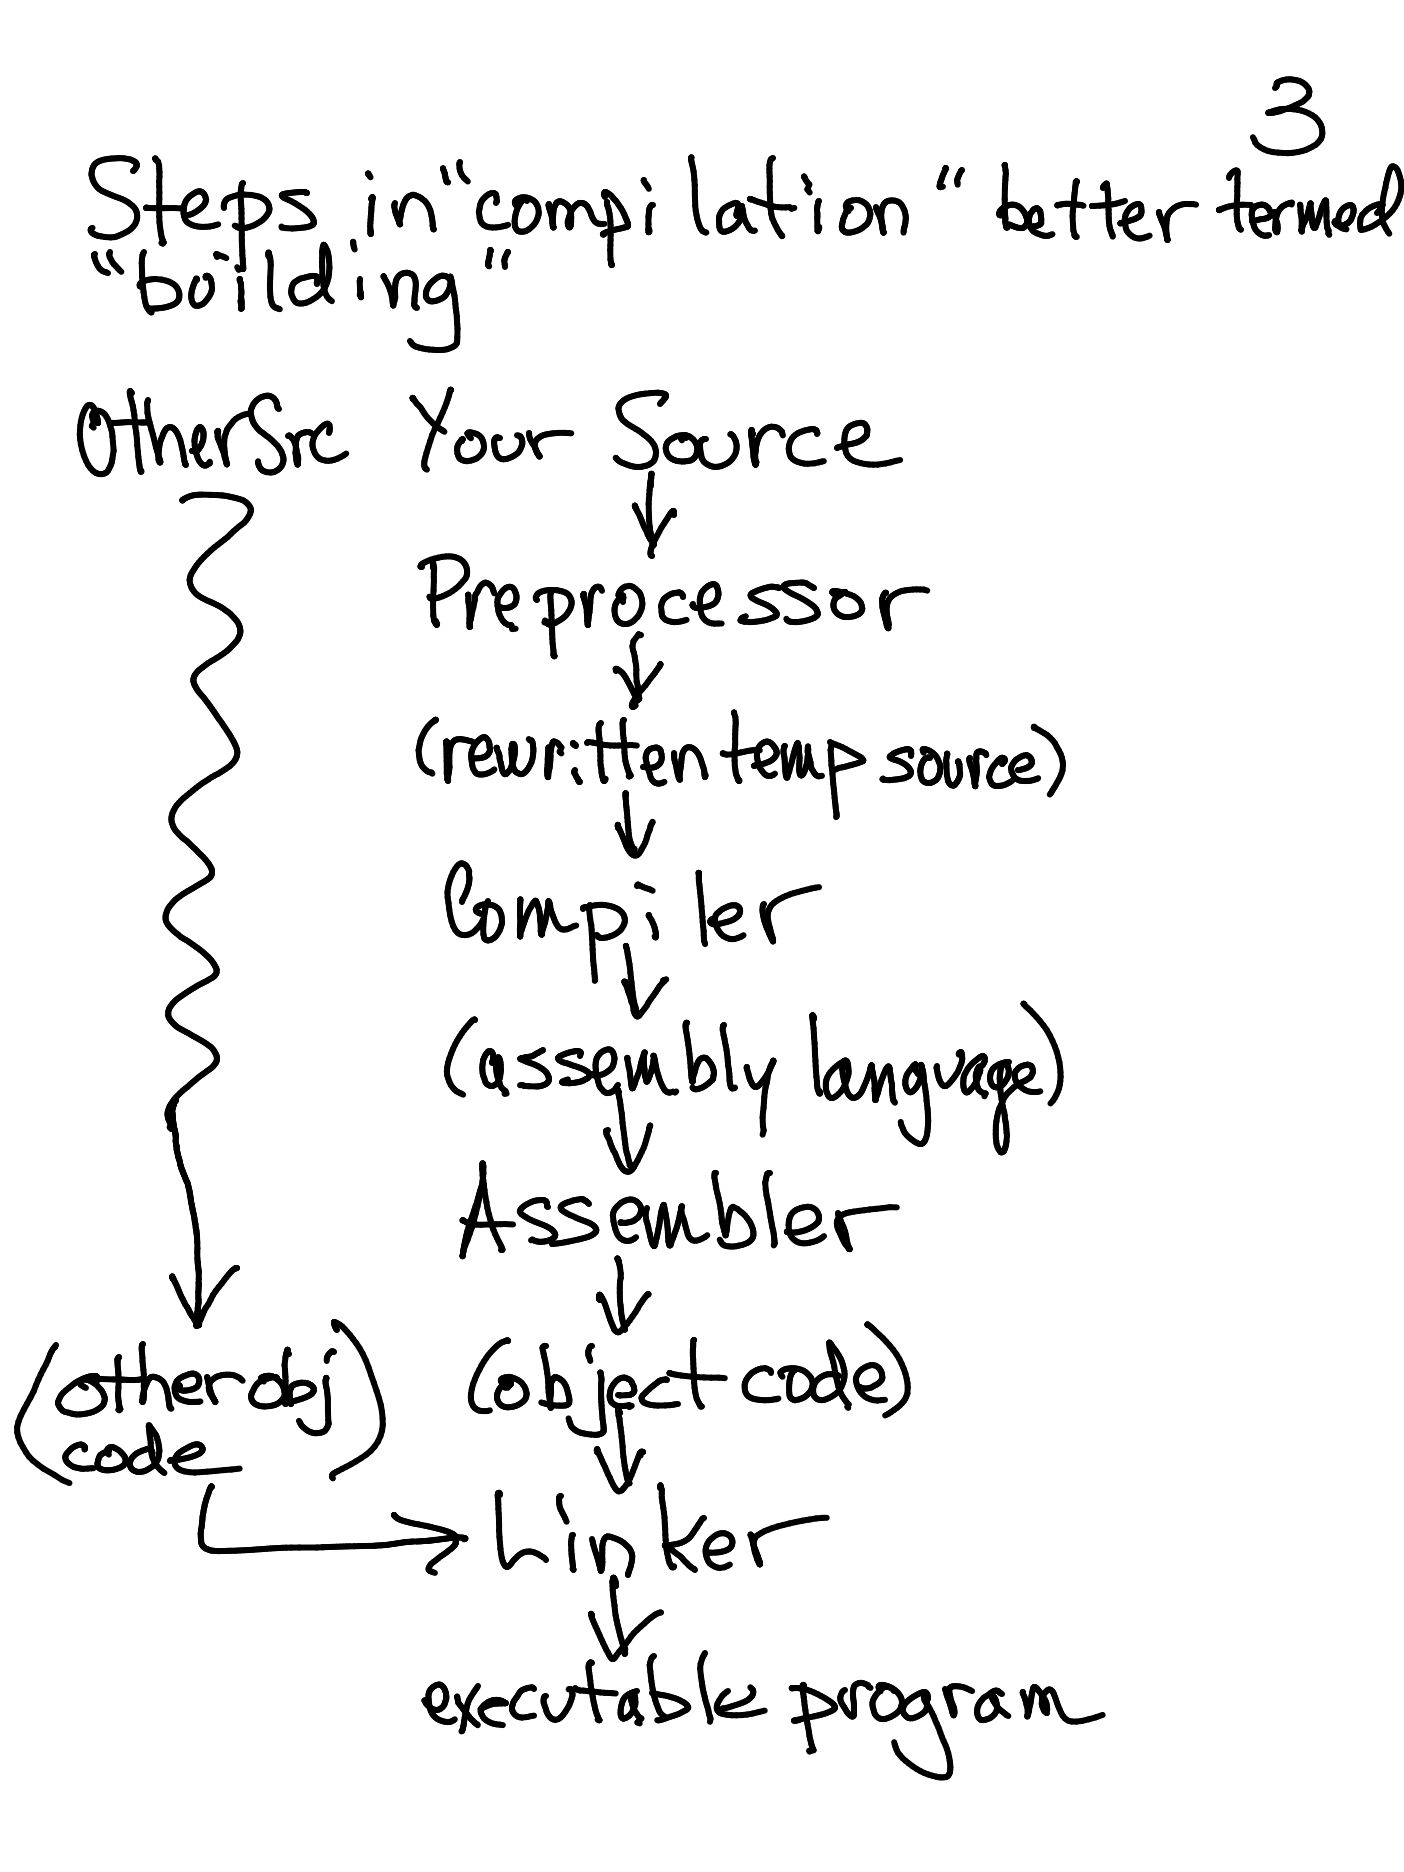 3
Steps in "compilation" better termed
"building"
OtherSrc Your Source
Preprocessor
(rewritten temp source)
Compiler
(assembly language)
Assembler
(other obj
code)
(object code)
Linker
executable program